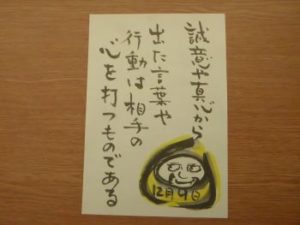 誠意や真心から
出た言葉や
行動は相手の
心を打つものである
12月9日